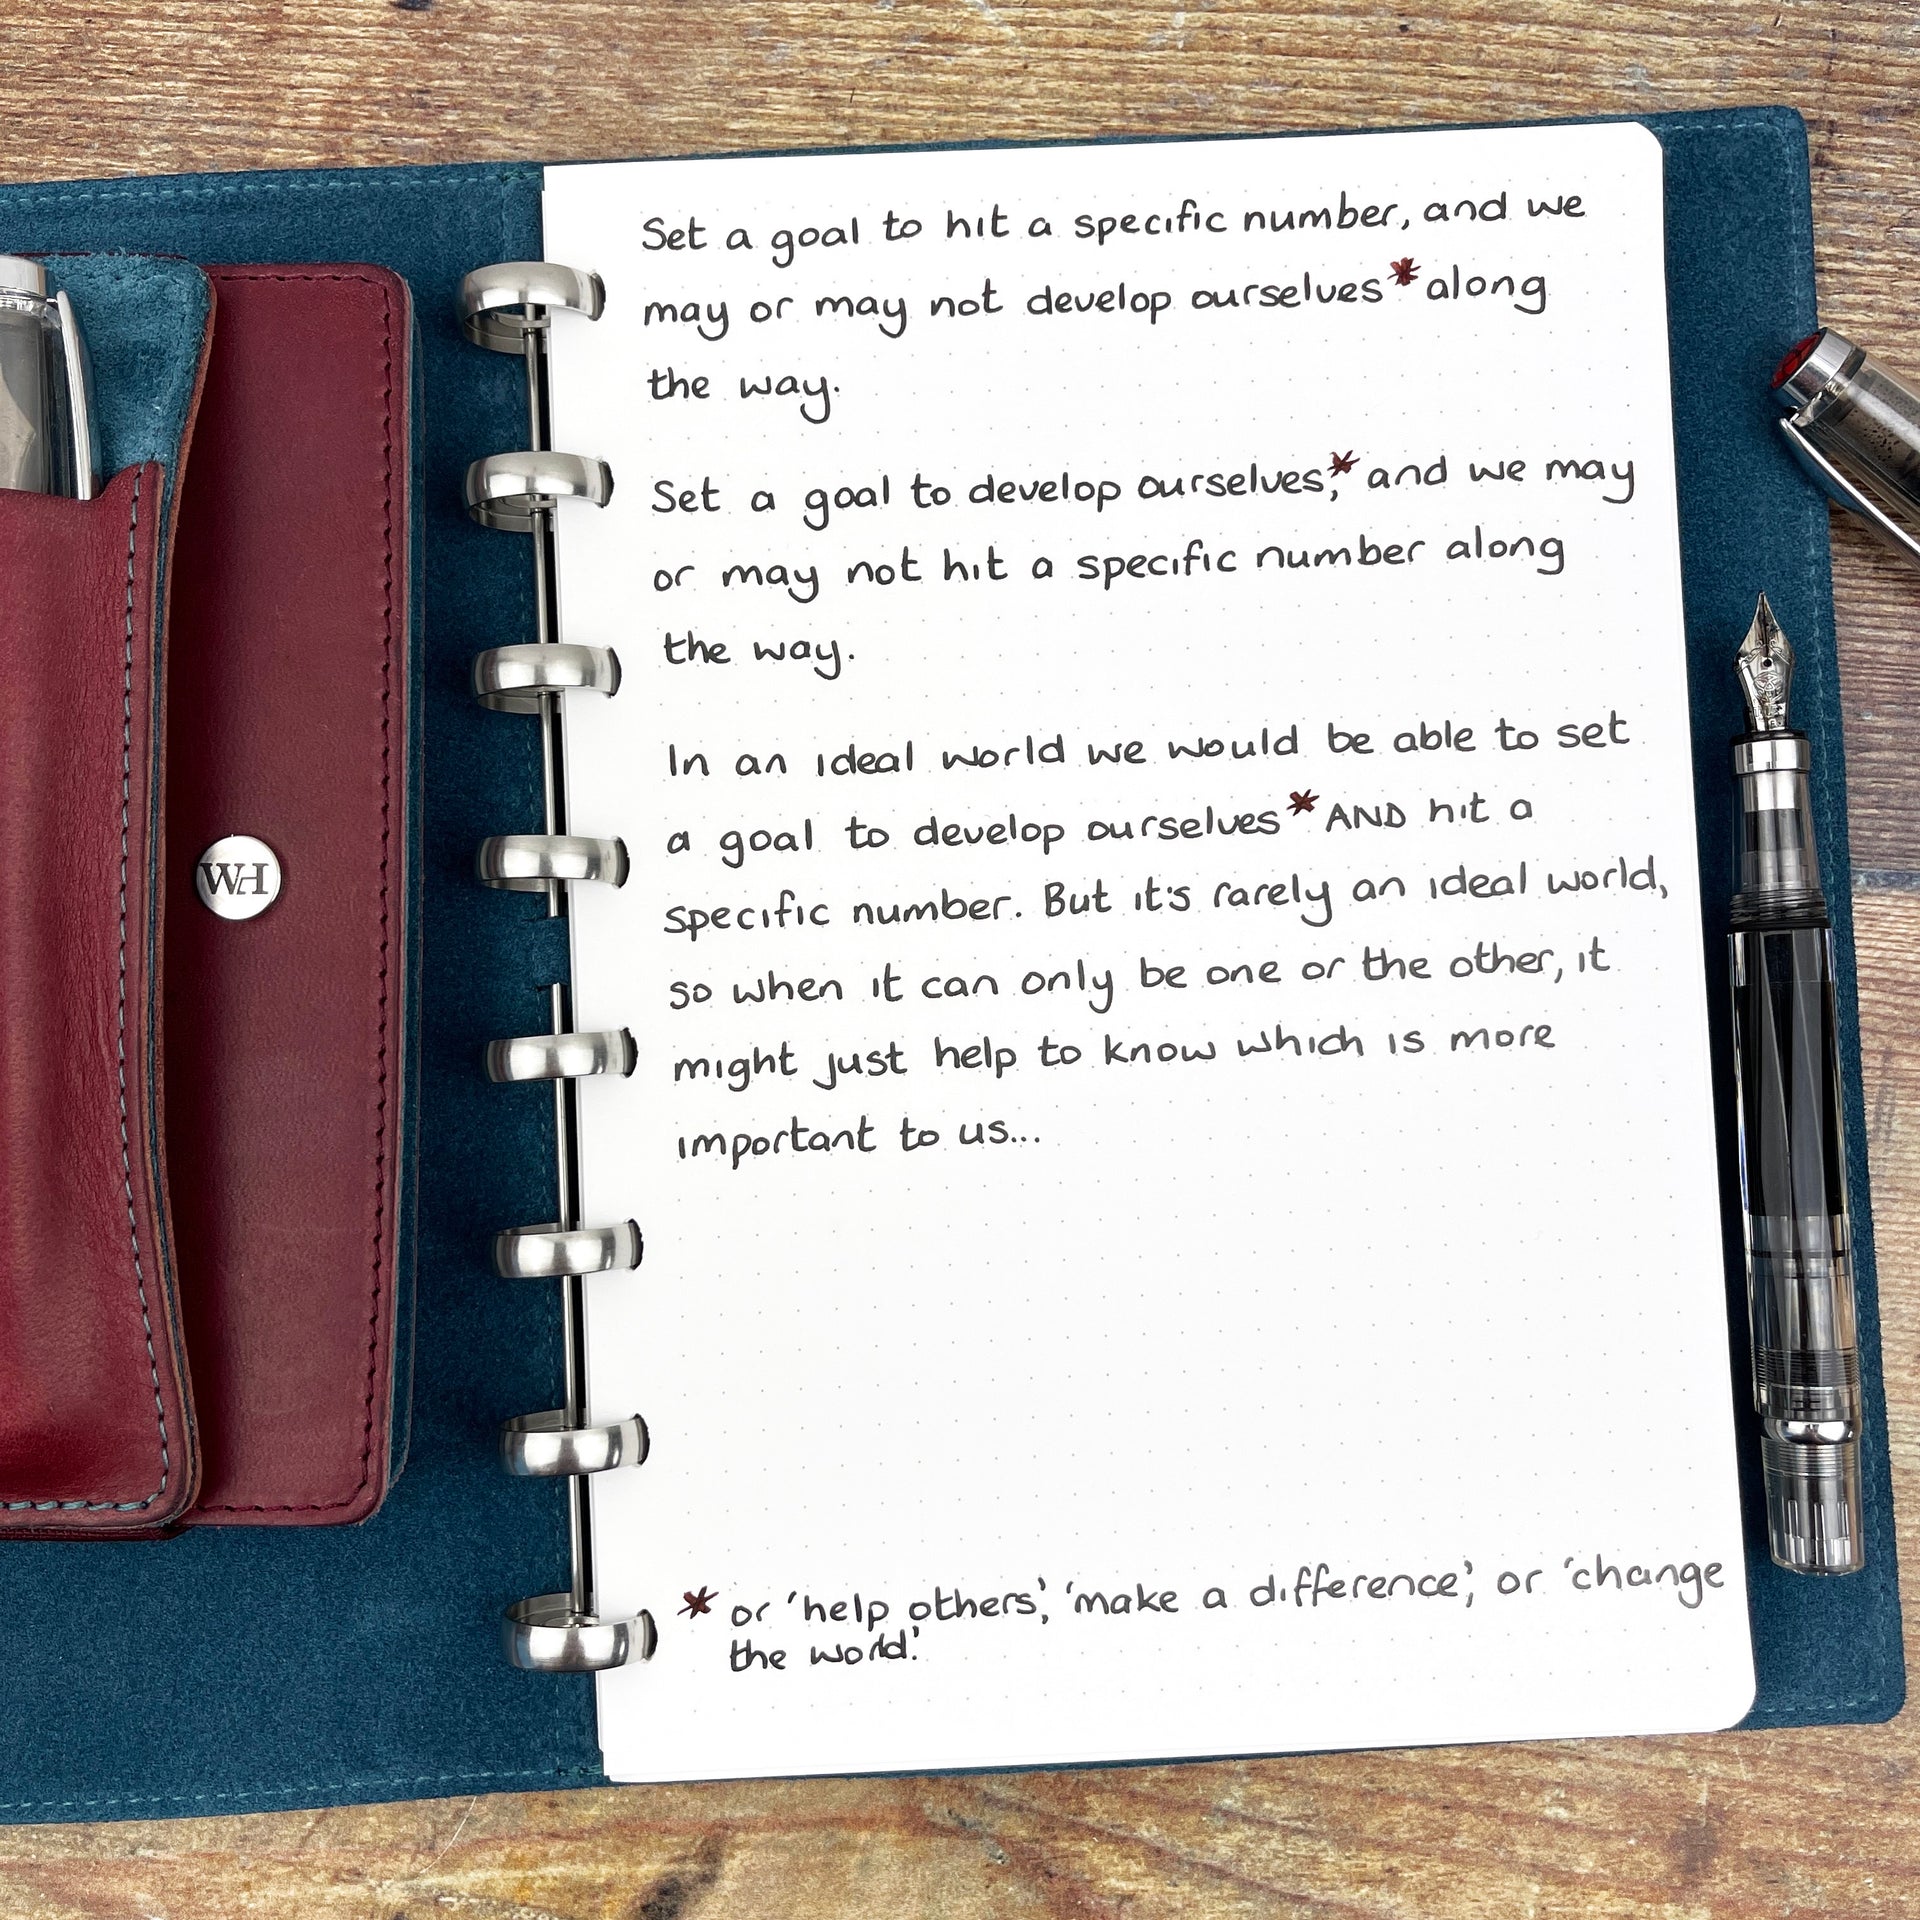 Set a goal to hit a specific number, and we
may or may not develop ourselves* along
the way.
Set a goal to develop ourselves,* and we may
or may not hit a specific number along
the way.
In an ideal world we would be able to set
a goal to develop ourselves* AND hit a
specific number. But it's rarely an ideal world,
so when it can only be one or the other, it
might just help to know which is more
important to us...
* or 'help others', 'make a difference', or 'change
the world.'
WH